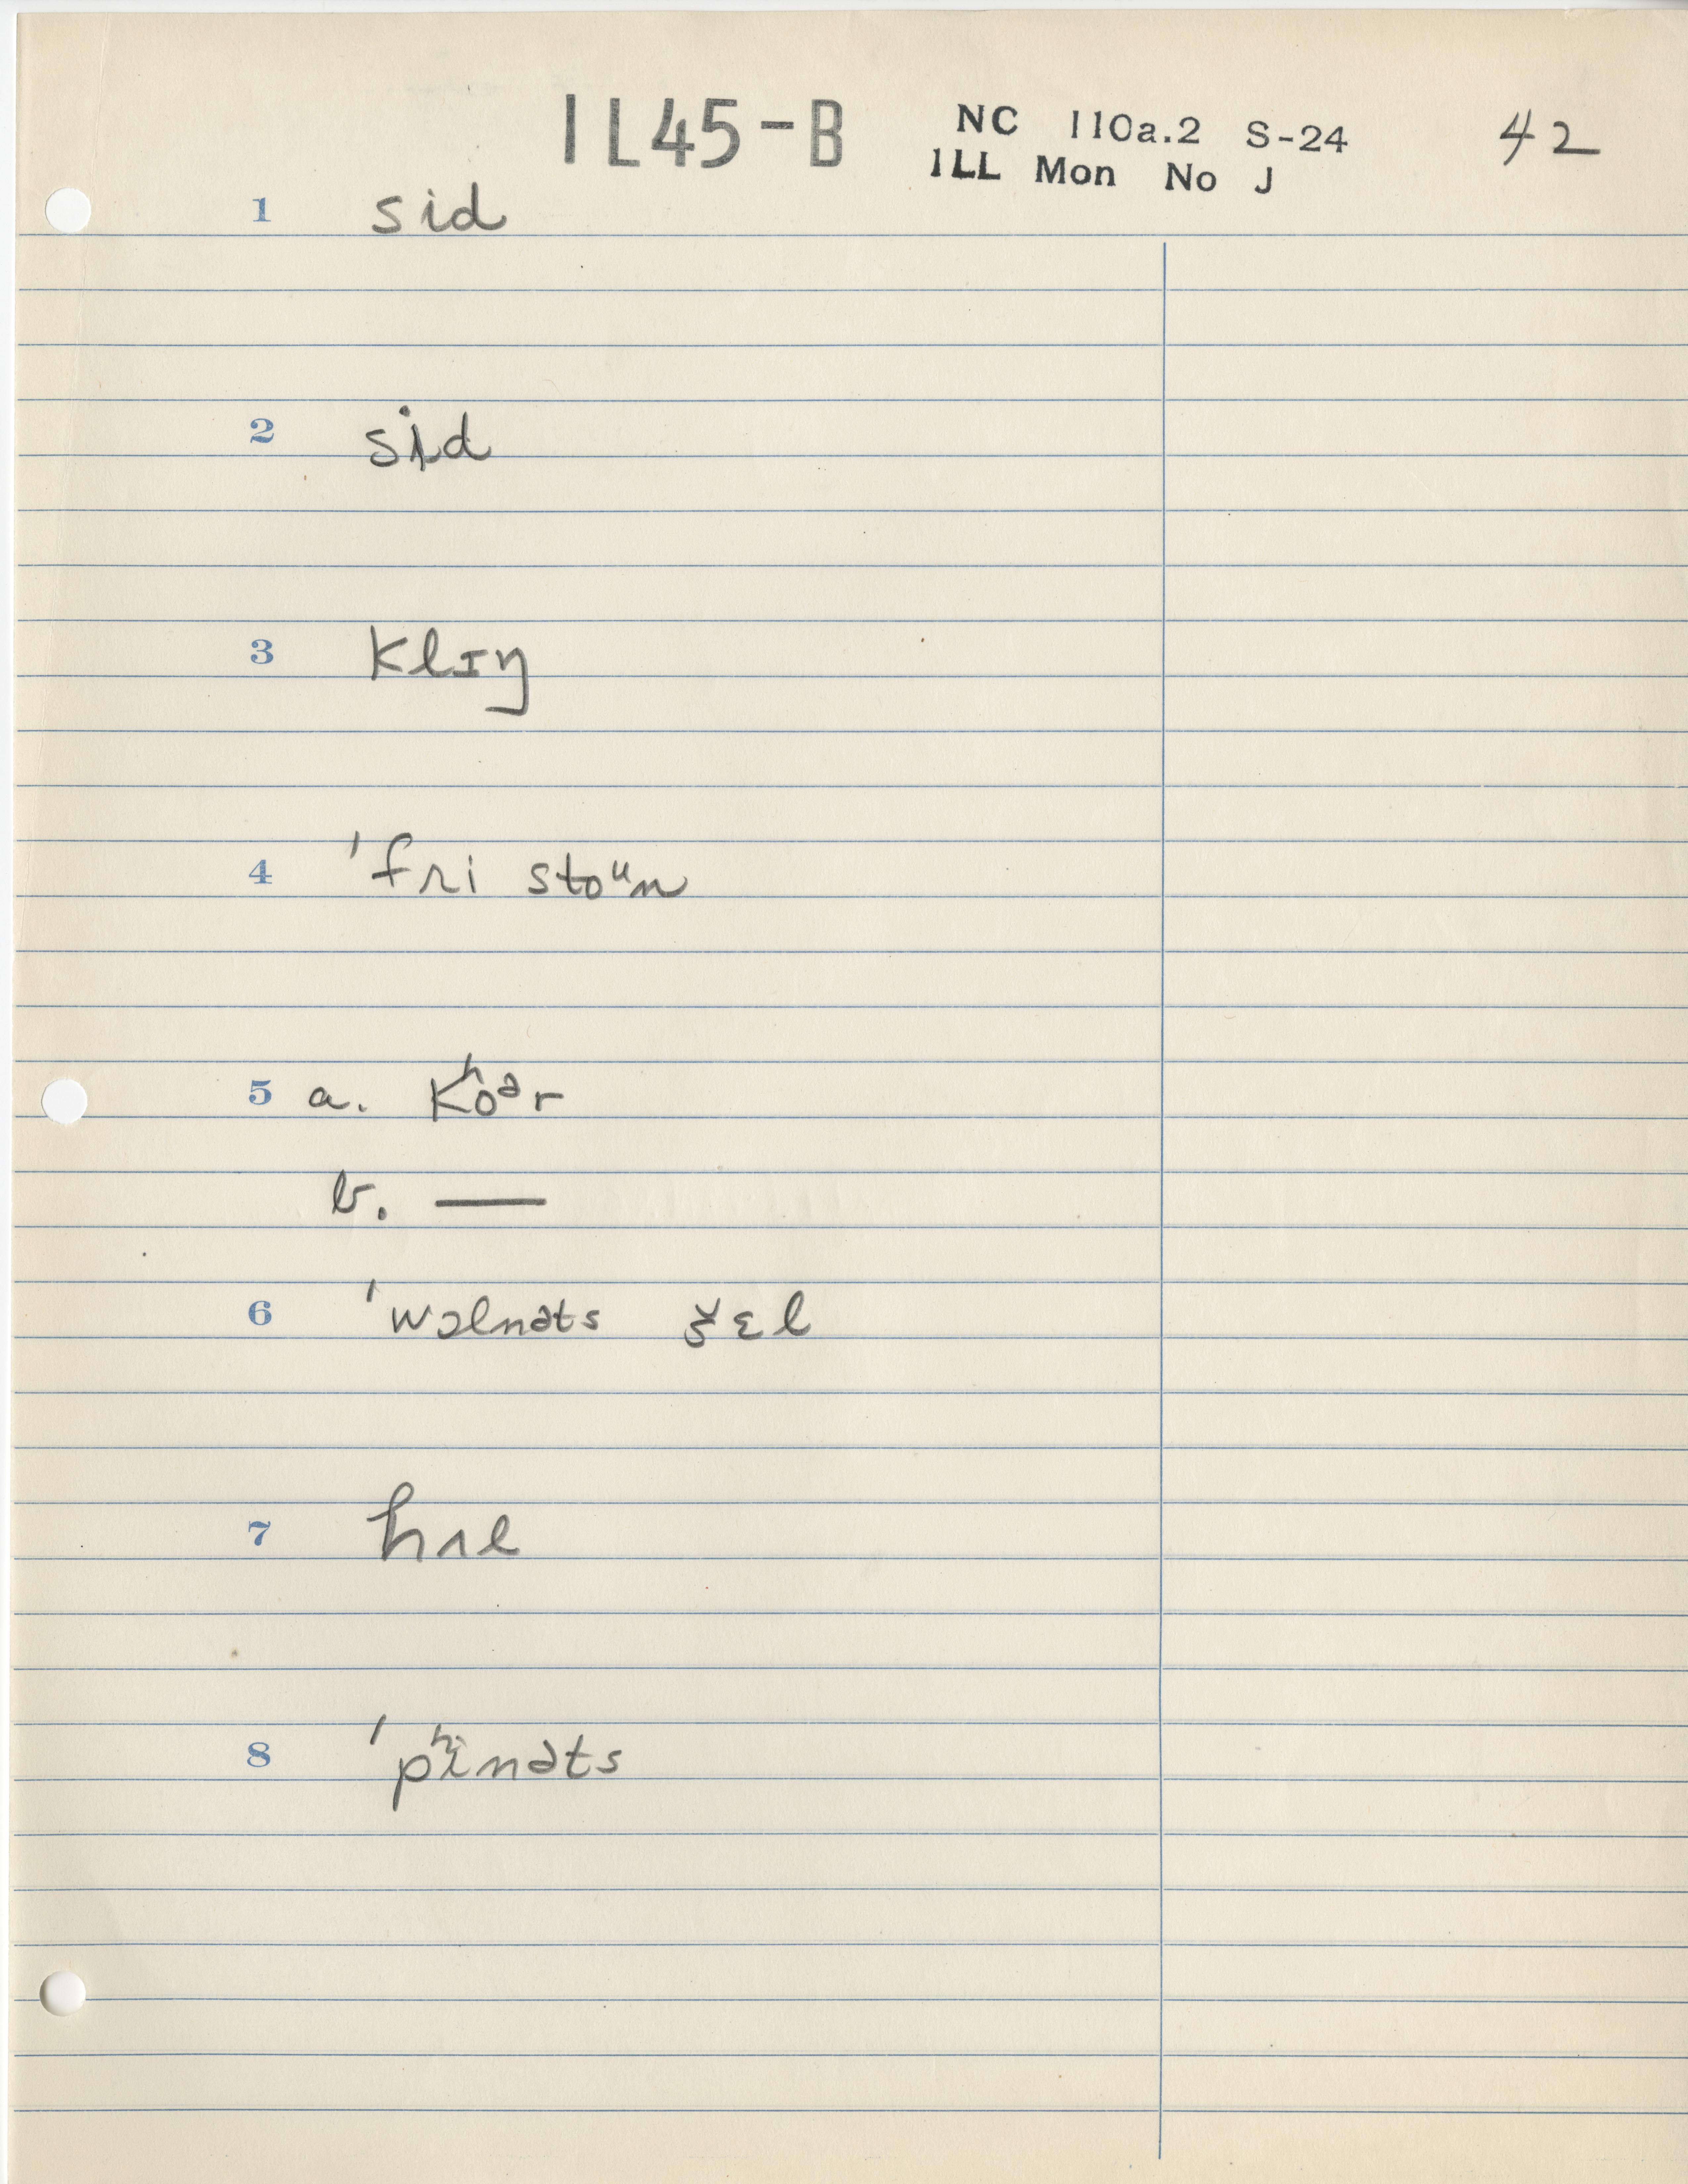 IL45-B NC 110a.2 S-24 42
ILL Mon No J
1 sid
2 sid
3 klɪŋ
4 ˈfri stoᵘn
5 a. kʰoᵊr
b. —
6 ˈwɔlnəts š̬ɛl
7 hʌl
8 ˈpʰinəts